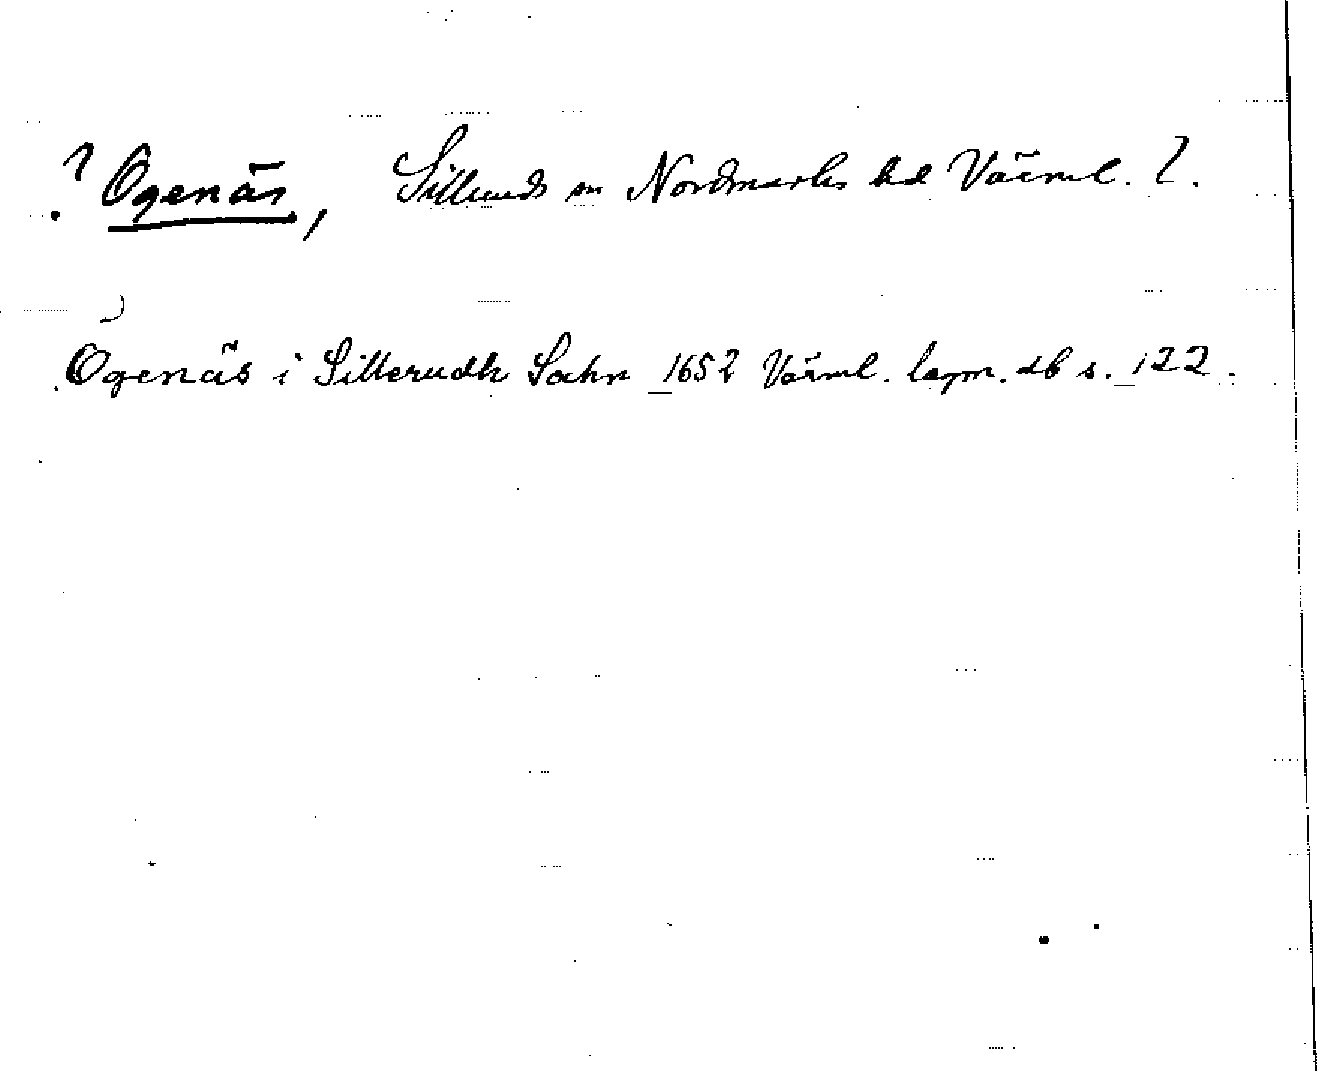 ? Ögenäs, Silleruds sn Nordmarks hd Värml. ?.
Ögenäs i Sillerudh Sokn 1652 Värml. lagm. db s. 122.